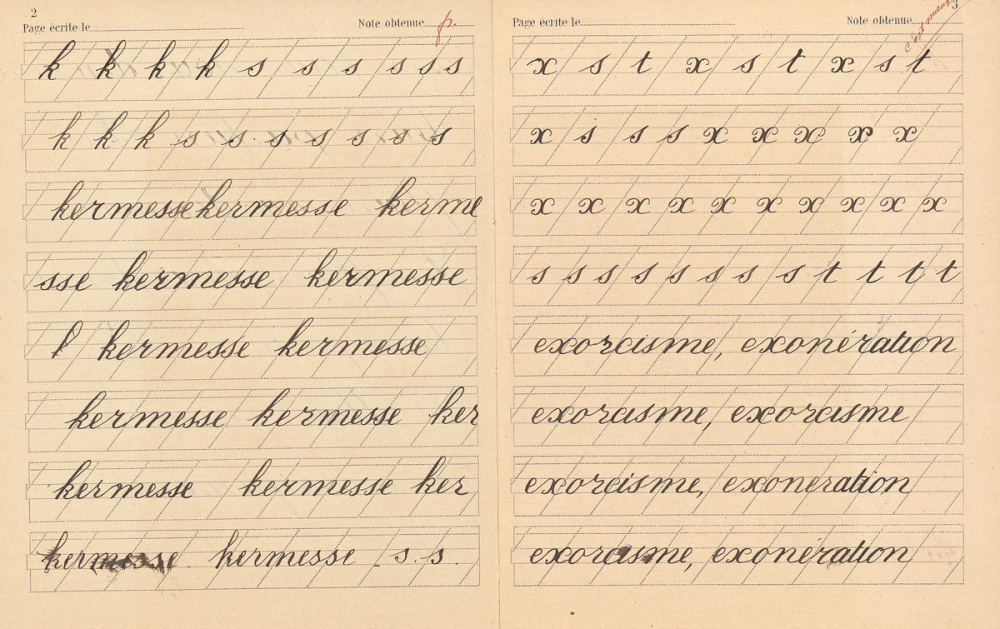 2
Page écrite le Note obtenue
k k k k s s s s s s
k k k s s s s s s s
kermesse kermesse kerme
sse kermesse kermesse
l kermesse kermesse
kermesse kermesse ker
kermesse kermesse ker
kermesse kermesse s. s.
3
Page écrite le Note obtenue
c'est mieux
x s t x s t x s t
x s s s x x x x x
x x x x x x x x x x
s s s s s s s s t t t t
exorcisme, exonération
exorcisme, exorcisme
exorcisme, exoneration
exorcisme, exonération